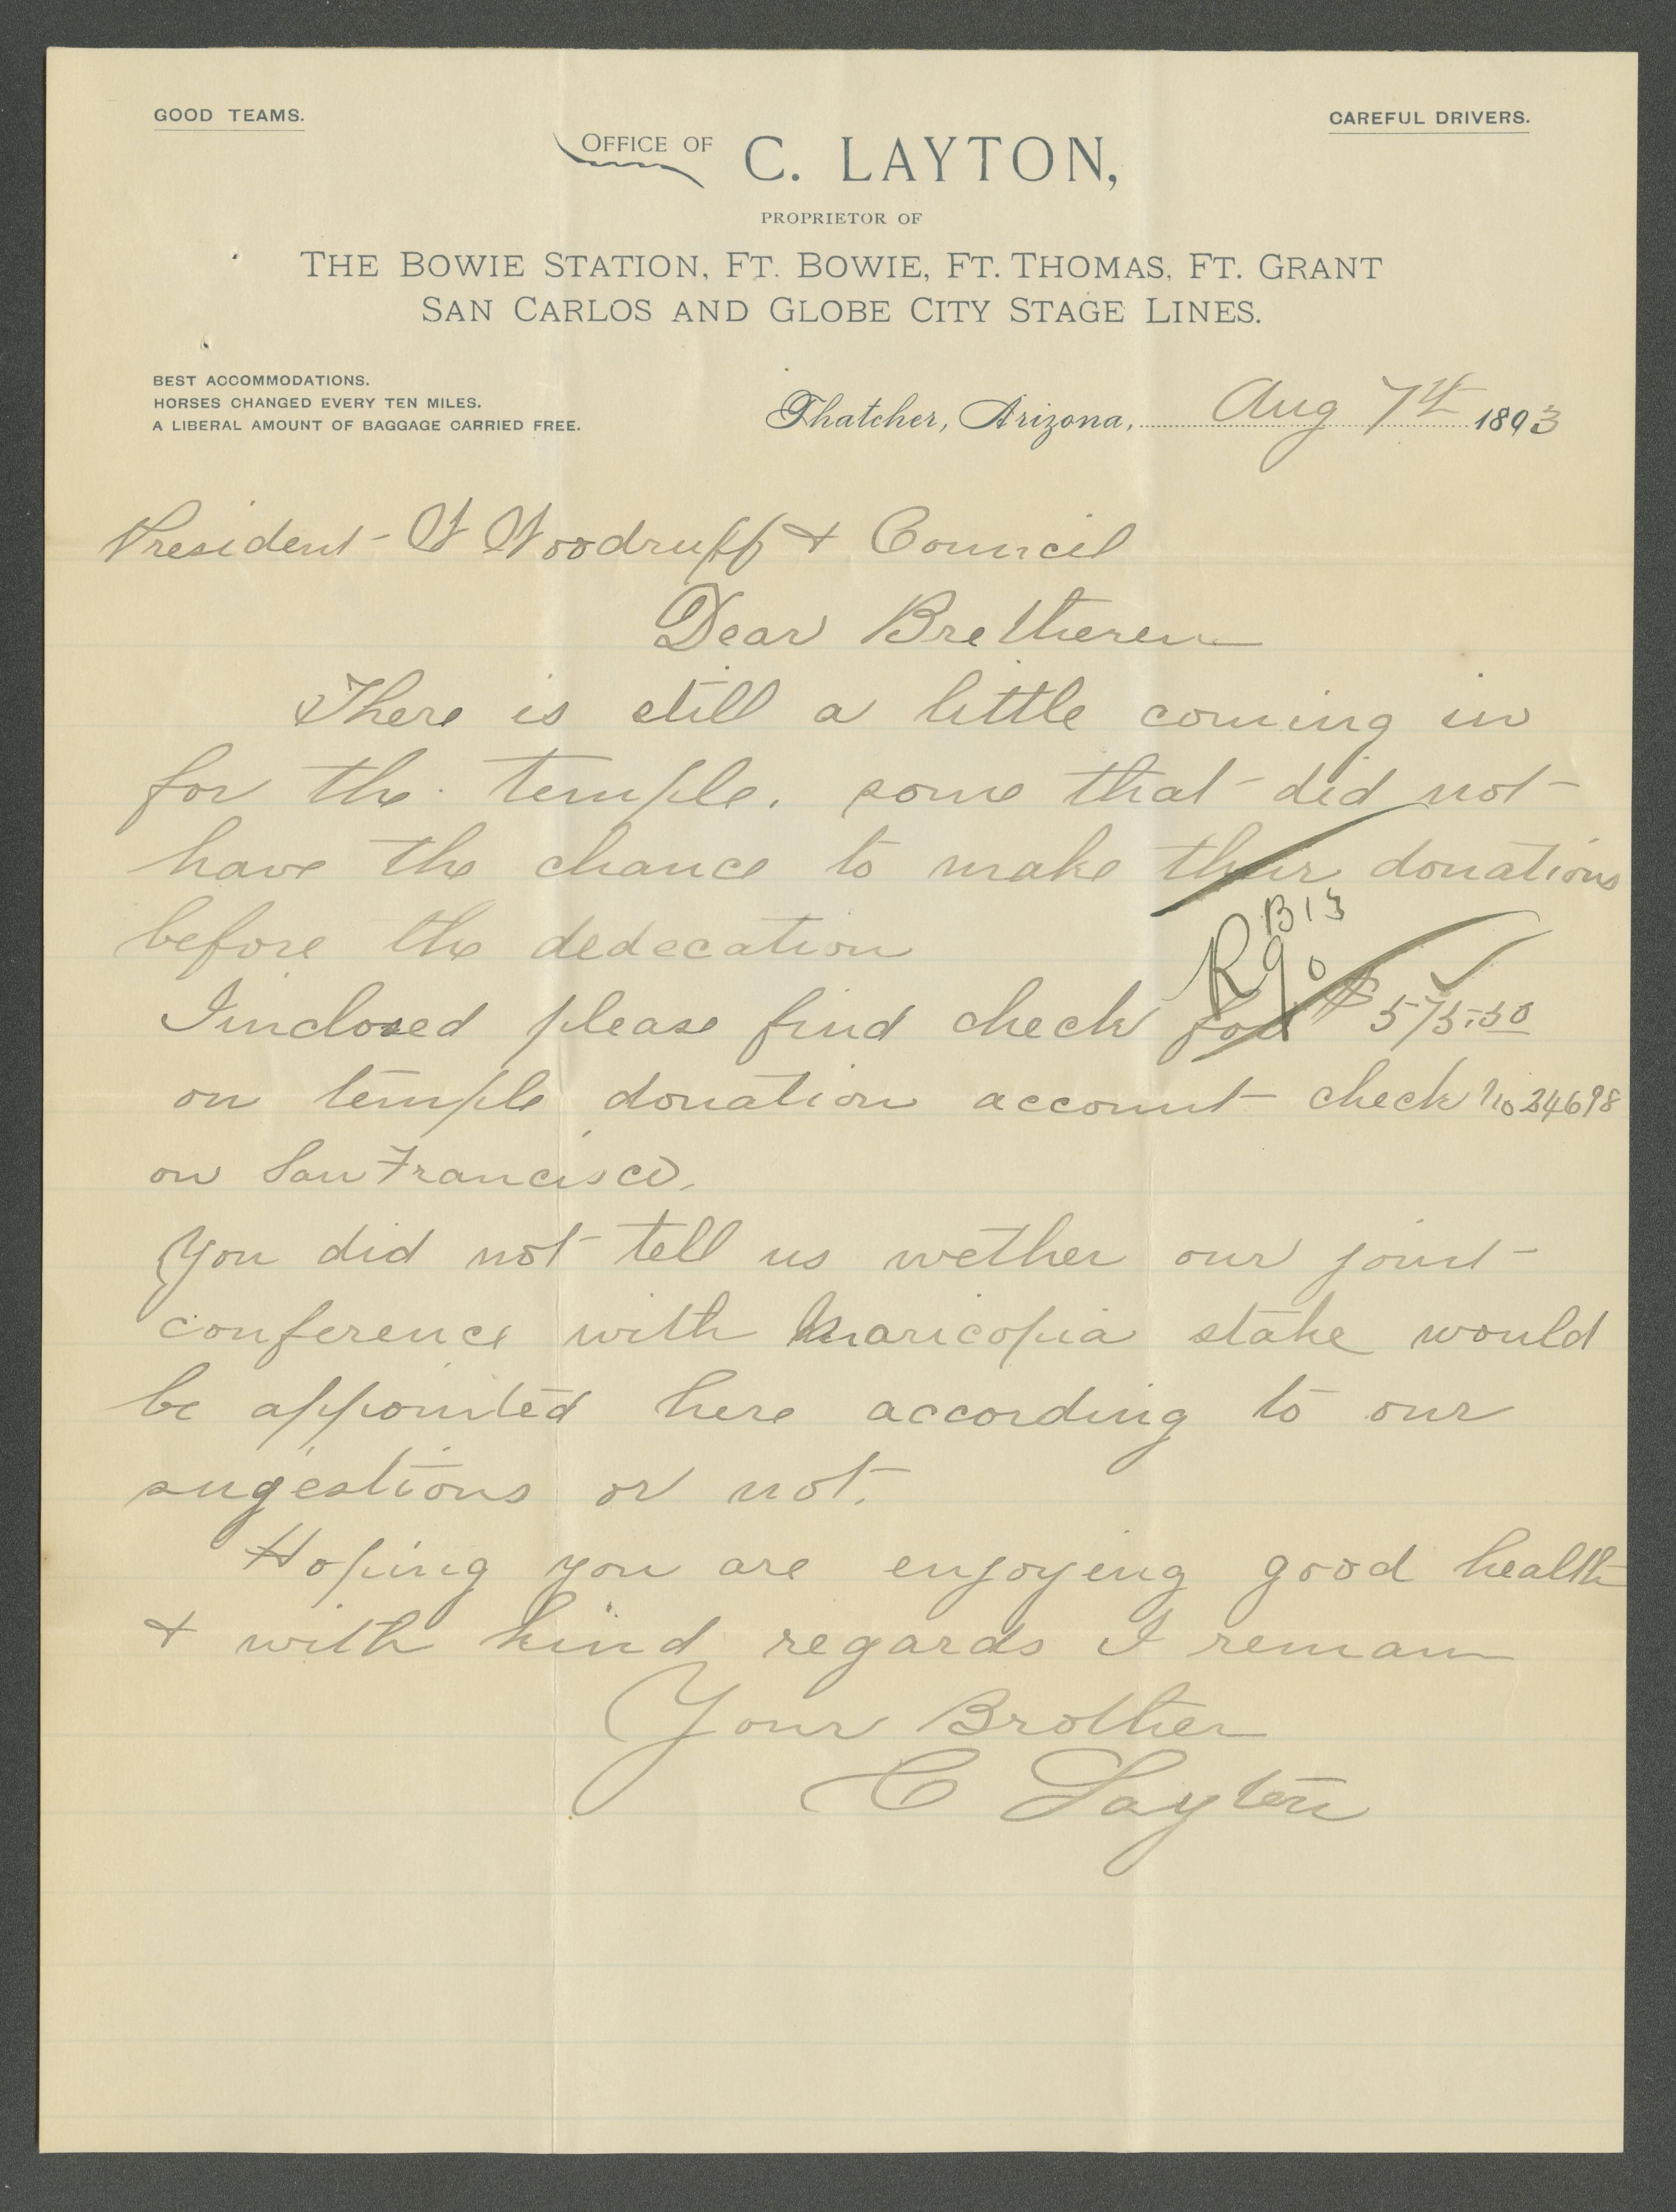 GOOD TEAMS.
CAREFUL DRIVERS.
OFFICE OF C. LAYTON,
PROPRIETOR OF
THE BOWIE STATION, FT. BOWIE, FT. THOMAS, FT. GRANT
SAN CARLOS AND GLOBE CITY STAGE LINES.
BEST ACCOMMODATIONS.
HORSES CHANGED EVERY TEN MILES.
A LIBERAL AMOUNT OF BAGGAGE CARRIED FREE.
Thatcher, Arizona, Aug 7th 1893
President W Woodruff & Council
Dear Bretheren
There is still a little coming in
for the temple. some that did not
have the chance to make their donations
before the dedecation
R B 13
90
Inclosed please find check for $ 575.50
on temple donation account check No 24698
on San Francisco.
You did not tell us wether our joint
conference with Maricopia stake would
be appointed here according to our
sugestions or not.
Hoping you are enjoying good health
& with kind regards I remain
Your Brother
C Layton